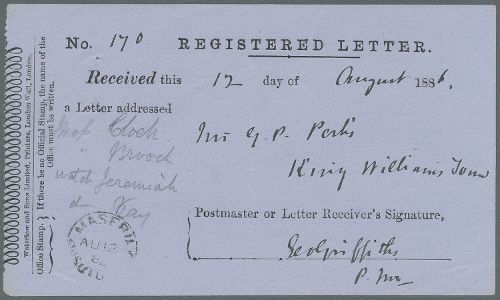 No. 170 REGISTERED LETTER.
Received this 12 day of August 1886.
a Letter addressed
Clock Mr G. P. Perks
" Brooch King Williams Town
Jeremiah
Postmaster or Letter Receiver's Signature,
Geo Griffiths
P. Mr
MASERU
AU 12
86
BASUTO
Office Stamp. } If there be no Official Stamp, the name of the
Office must be written.
Waterlow and Sons Limited, Printers, London Wall, London.